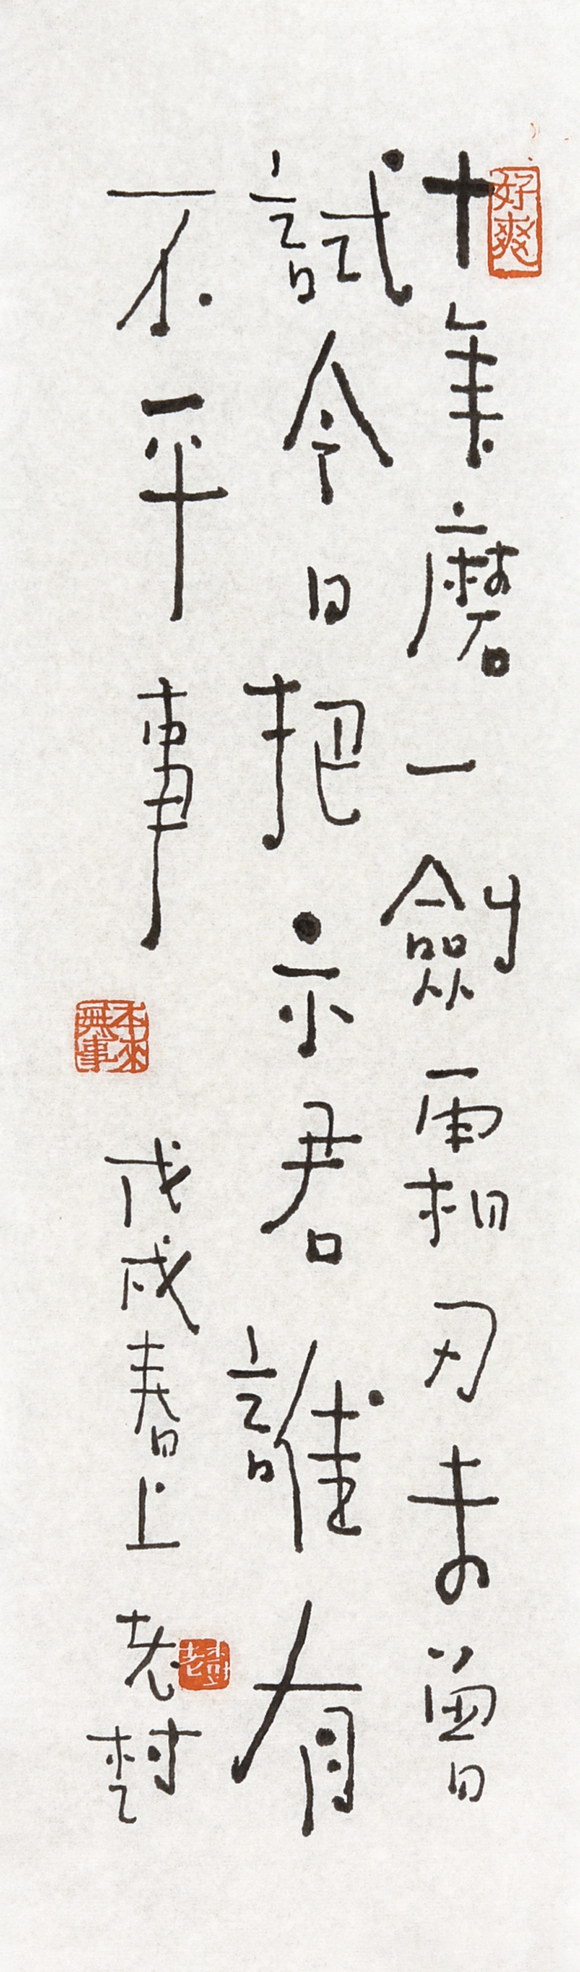 十年磨一劍霜刃未曾
試今日把示君誰有
不平事
戊戌春上
老村
好爽
本來無事
老村